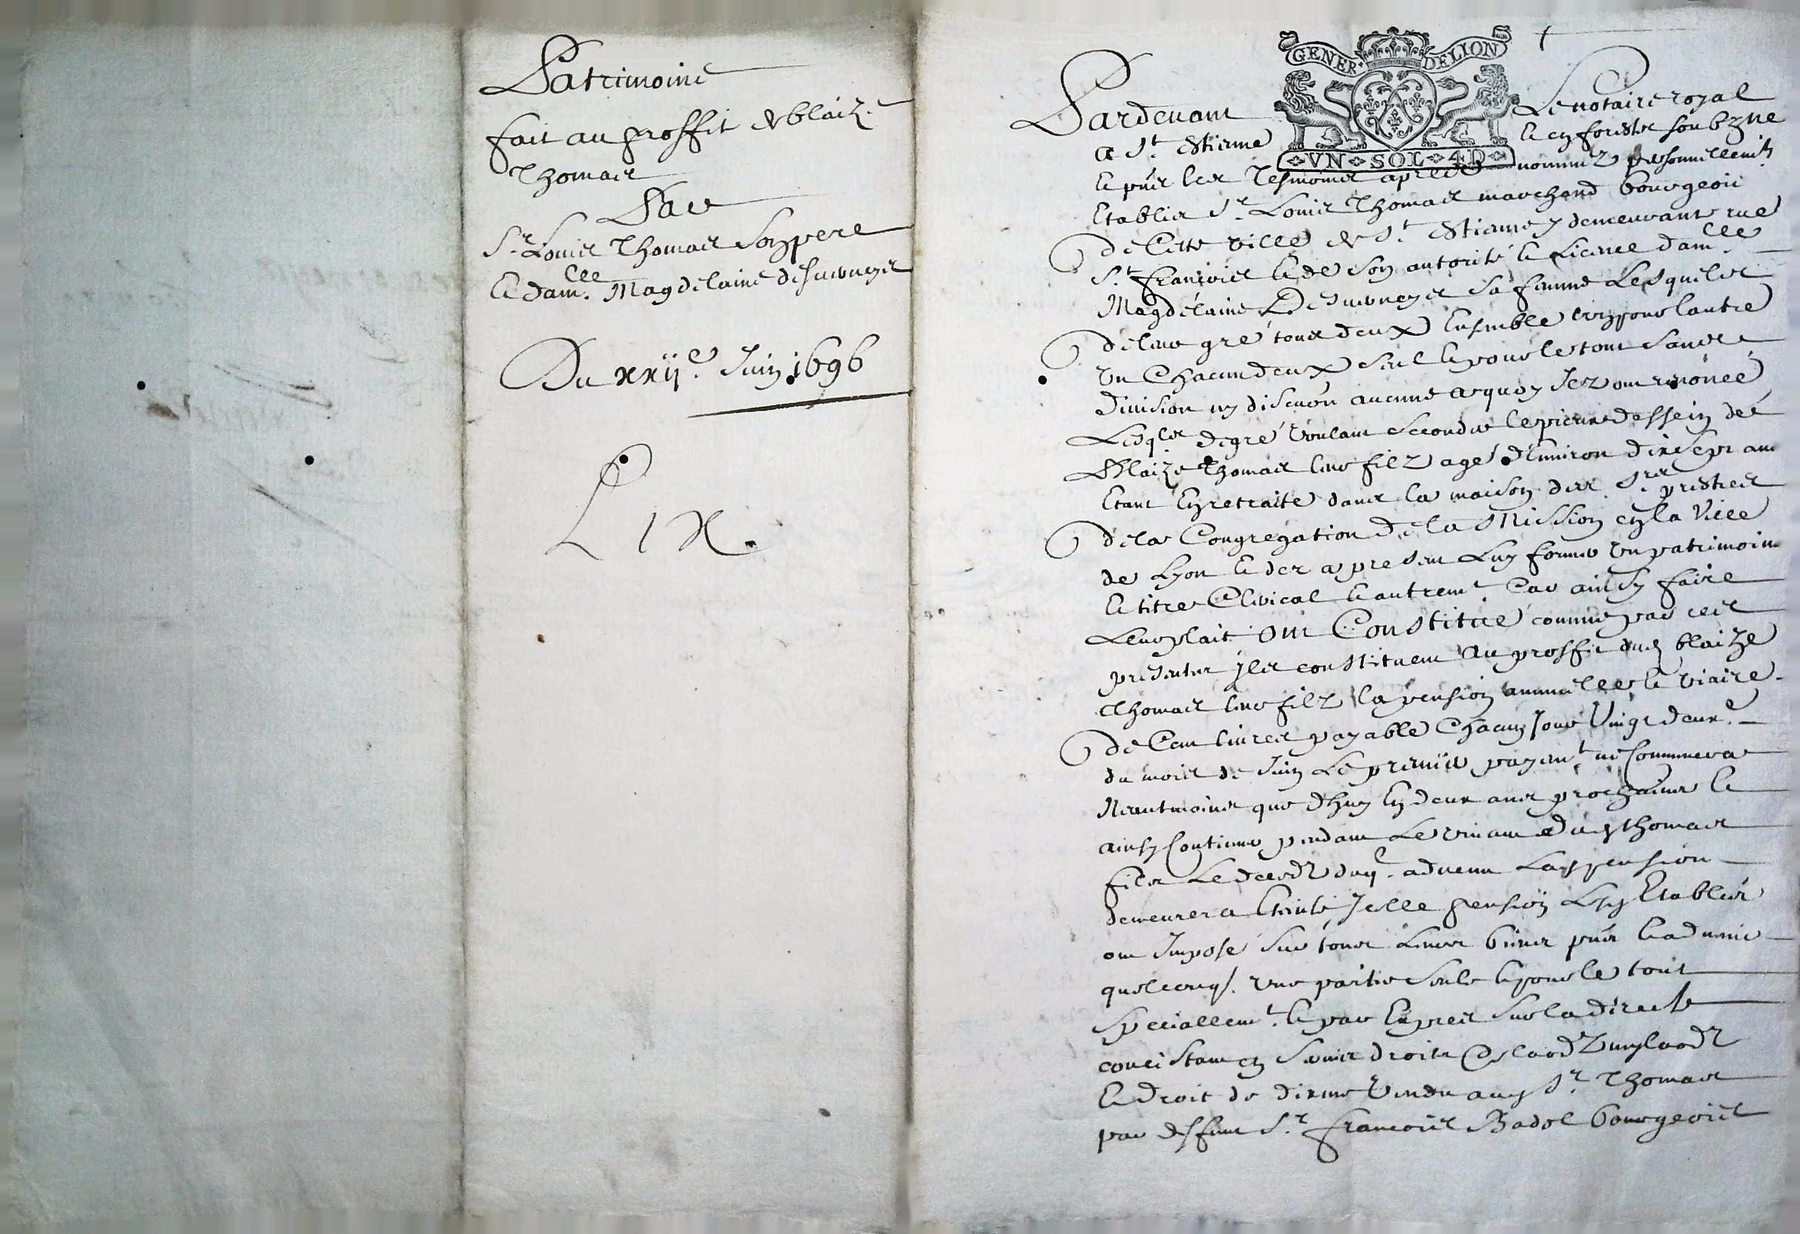 Patrimoine
fait au proffit de blaize
Thomas
Par
Sr Louis Thomas son pere
et damlle Magdelaine desuerneys
Du xxije Juin 1696
Lix.
GENER DELION
VN SOL 4D
Pardevant Le notaire royal
a St Estienne et en forestz soubzne
et pñs les tesmoins apres nommez personnellemt
Establis Sr Louis Thomas marchand bourgeois
de Cette ville de St Estienne y demeurant rue
St françois et de son autorité et licence damlle
Magdelaine sa femme Lesquels
de leur gré tous deux ensemble lautre
Un Chacun deux seul et pour le tout sans
division ny discuón aucune a quoy ilz ont renoncé
Lesqls de gré voulant seconder le pieux dessein de
Blaize Thomas leur filz agé denviron dixsept ans
Estant en retraite dans la maison des Srs prestres
de la Congregation de la Mission en la Ville
de Lyon et dez a present luy former un patrimoine
et titre Clerical et autremt Car ainsy faire
Leur plait ont Constitué comme par ces
presentes ils constituent au proffit dud blaize
Thomas leur filz la pension annuelle et viaire
de Cent livres payable Chacun Jour Vingt deuxe
du mois de Juin Le premier payemt ne Commencera
Neantmoins que dhuy en deux ans prochains et
ainsy Continuer pendant Le vivant dud Thomas
filz Le decedz advenu Lad pension
demeurera Esteinte Jcelle pension Establis
ont Jmposé sur tous Leurs biens pñs et advenir
quelconq. une partie seule et pour le tout
speciallemt et par Expres sur la directe
concistant en servis droits de laodz mylaodz
et droit de dixme Vendu aud Sr Thomas
par deffunt Sr francois Badol bourgeois